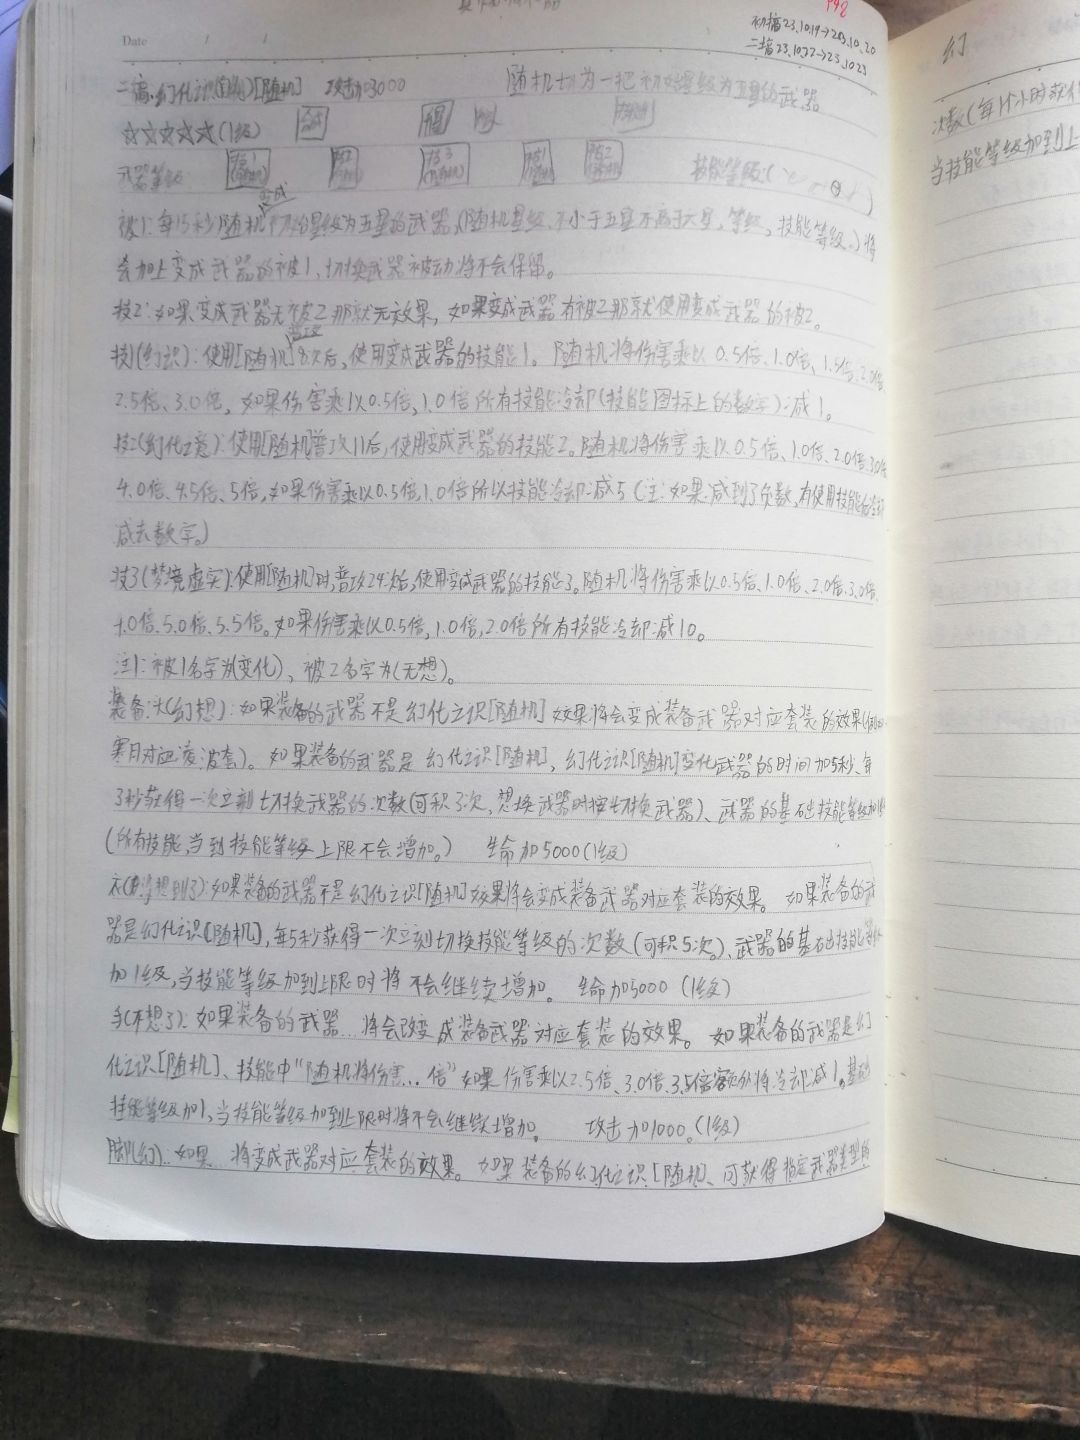 P42
初稿23.10.19→23.10.20
二稿23.10.22→23.10.23
Date / /
二稿.幻化之识[随机] 攻击加3000 随机切为一把初始星级为五星的武器
☆☆☆☆☆(1级)
武器等级 技能等级:( )
变成
被1:每15秒随机切初始星级为五星的武器,(随机星级、不小于五星不高于六星,等级,技能等级。)将
会加上变成武器的被1、切换武器被动将不会保留。
技2:如果变成武器无被2那就无效果,如果变成武器有被2那就使用变成武器的被2。
普攻
技1(幻识):使用[随机]8次后,使用变成武器的技能1。随机将伤害乘以0.5倍、1.0倍、1.5倍、2.0倍
2.5倍、3.0倍,如果伤害乘以0.5倍,1.0倍所有技能冷却(技能图标上的数字):减1。
技2(幻化之意):使用[随机]普攻11后,使用变成武器的技能2。随机将伤害乘以0.5倍、1.0倍、2.0倍、3.0倍
4.0倍、4.5倍、5倍,如果伤害乘以0.5倍,1.0倍所以技能冷却:减5(注:如果减到了负数,有使用技能后冷却
减去数字。)
技3(梦境虚实):使用[随机]时,普攻24次后,使用变成武器的技能3。随机将伤害乘以0.5倍、1.0倍、2.0倍、3.0倍、
4.0倍、5.0倍、5.5倍。如果伤害乘以0.5倍,1.0倍,2.0倍所有技能冷却:减10。
注1:被1名字为(变化)、被2名字为(无想)。
装备:头(幻想):如果装备的武器不是幻化之识[随机]效果将会变成装备武器对应套装的效果(例如
寒月对应凌波套)。如果装备的武器是幻化之识[随机],幻化之识[随机]变化武器的时间加5秒、每
3秒获得一次立刻切换武器的次数(可积3次,想换武器时按切换武器)、武器的基础技能等级加1级
(所有技能,当到技能等级上限不会增加。) 生命加5000(1级)
衣(梦想到了):如果装备的武器不是幻化之识[随机]效果将会变成装备武器对应套装的效果。如果装备的武
器是幻化之识[随机],每5秒获得一次立刻切换技能等级的次数(可积5次)、武器的基础技能等级
加1级,当技能等级加到上限时将不会继续增加。 生命加5000(1级)
手(不想了):如果装备的武器…将会改变成装备武器对应套装的效果。如果装备的武器是幻
化之识[随机]、技能中“随机将伤害…倍”如果伤害乘以2.5倍、3.0倍、3.5倍额外将冷却:减1。基础
技能等级加1,当技能等级加到上限时将不会继续增加。 攻击加1000。(1级)
脚(幻):如果…将变成武器对应套装的效果。如果装备的幻化之识[随机]、可获得指定武器类型的
幻
次数(每1个小时获得
当技能等级加到上